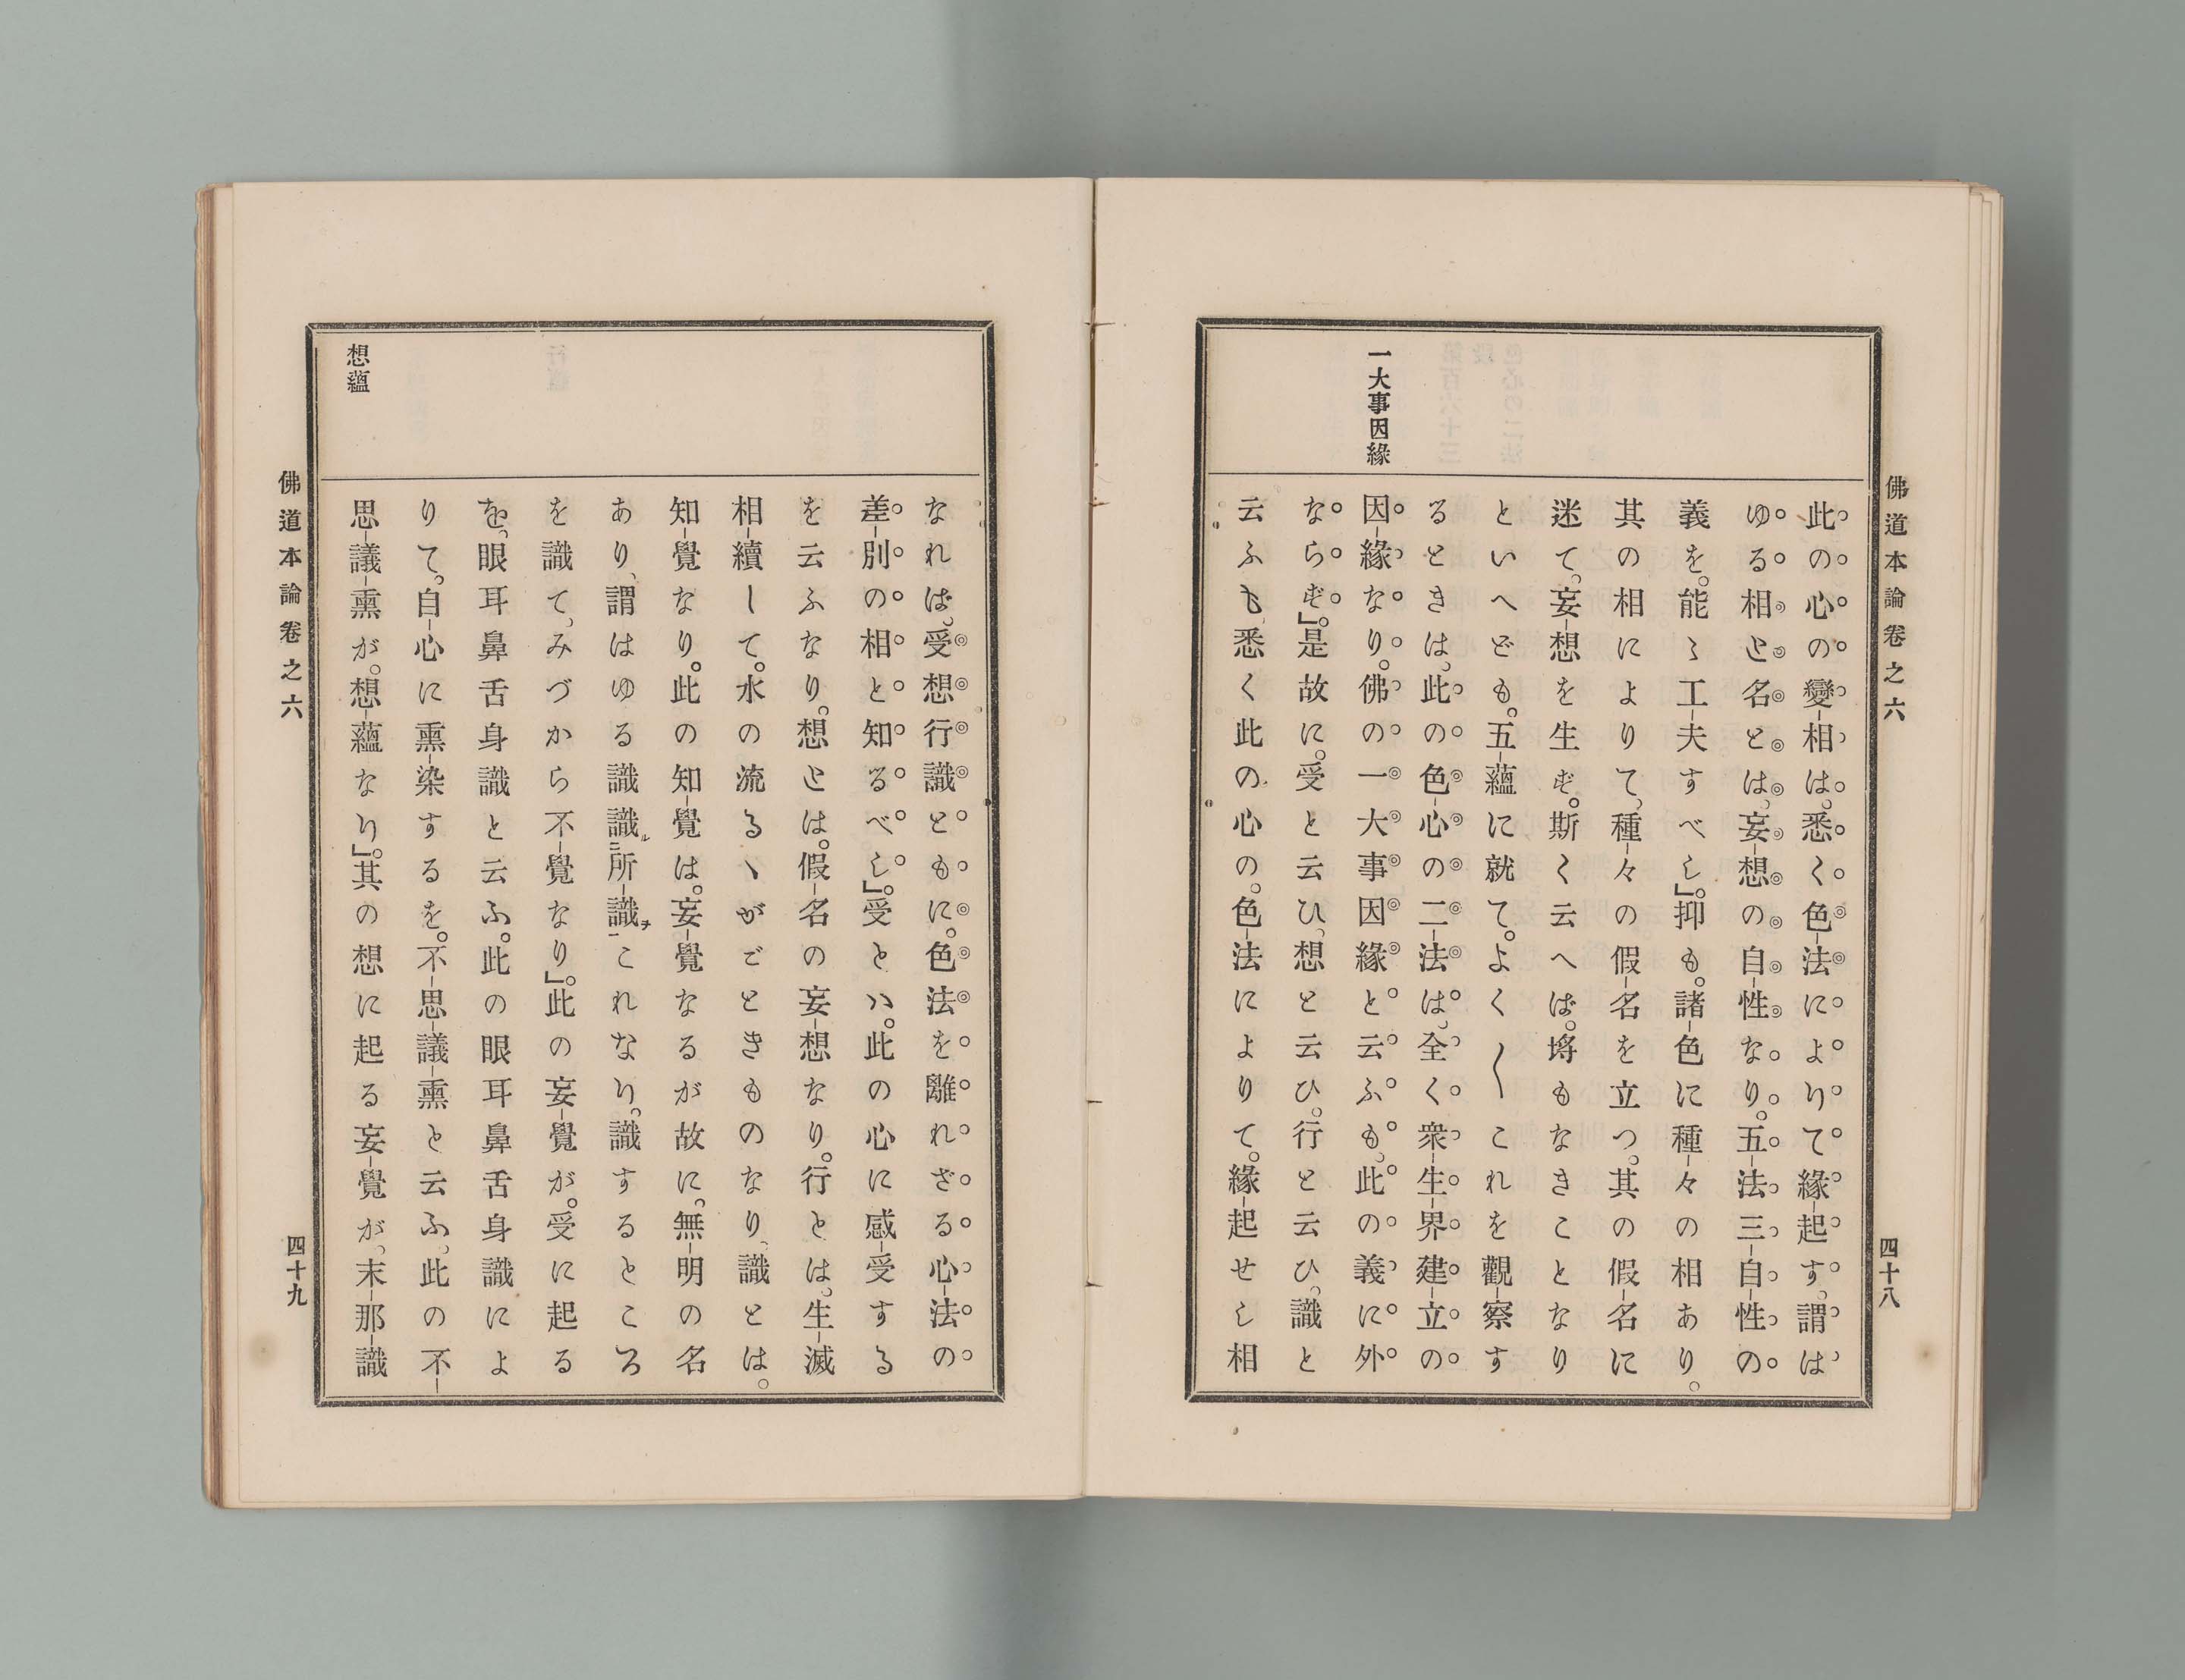 佛道本論卷之六
四十八
一大事因緣
此の心の變相は。悉く色法によりて緣起す。謂は
ゆる相と名とは、妄想の自性なり。五法三自性の
義を。能〻工夫すべし」。抑も。諸色に種々の相あり。
其の相によりて、種々の假名を立つ。其の假名に
迷て、妄想を生ず。斯く云へば。埓もなきことなり
といへども。五蘊に就て。よく〱これを觀察す
るときは、此の色心の二法は、全く衆生界建立の
因緣なり。佛の一大事因緣と云ふも。此の義に外
ならず」。是故に。受と云ひ、想と云ひ。行と云ひ。識と
云ふも、悉く此の心の。色法によりて。緣起せし相
なれば、受想行識ともに。色法を離れざる心法の
差別の相と知るべし」。受とハ。此の心に感受する
を云ふなり。想とは。假名の妄想なり。行とは。生滅
相續して。水の流るゝがごときものなり、識とは。
知覺なり。此の知覺は。妄覺なるが故に。無明の名
あり、謂はゆる識識ルニ所識ヲ一これなり。識するところ
を識て、みづから不覺なり」。此の妄覺が。受に起る
を、眼耳鼻舌身識と云ふ。此の眼耳鼻舌身識によ
りて。自心に熏染するを。不思議熏と云ふ。此の不
思議熏が。想蘊なり」。其の想に起る妄覺が、末那識
想蘊
佛道本論卷之六
四十九